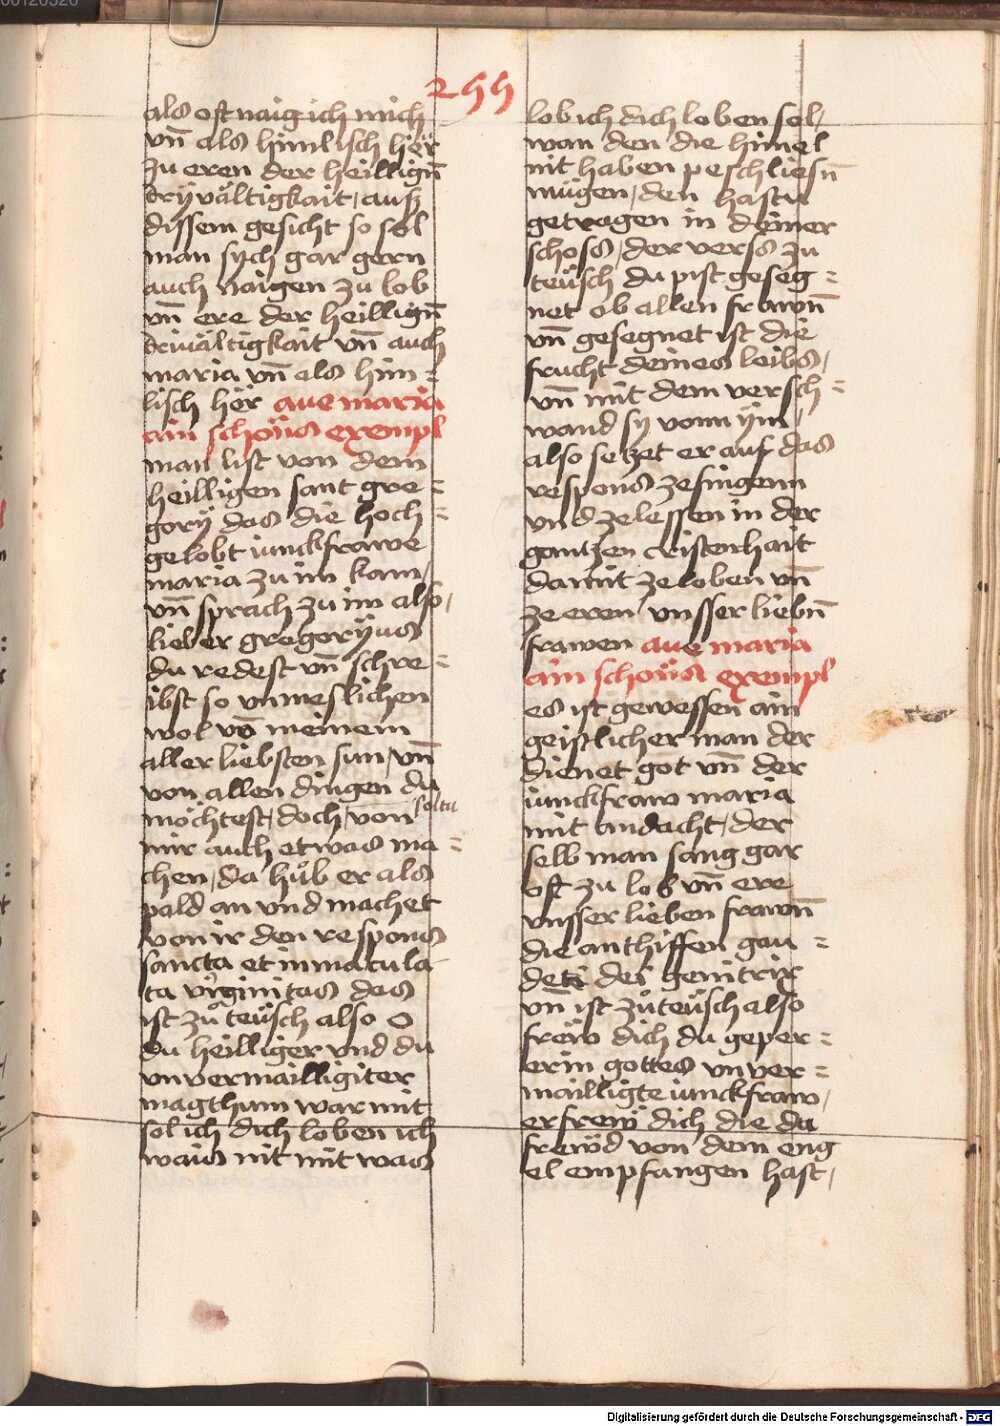 255
als oft naig ich mich
vn̄ als himlisch hër
zu eren der heillign̄
dryvältigkait, auß
dissem gesicht so sol
man sych gar gern
auch naigen zu lob
vn̄ ere der heillign̄
driuältigkait vn̄ auch
maria vn̄ als him=
lisch hër aue maria
ain schöns exempl
man list von dem
heilligen sant gre=
gorÿ das die hoch=
gelobt iunckfrawe
maria zu im kam,
vn̄ sprach zu im also,
lieber gregorÿus
du redest vn̄ schre=
ibst so vnmeslichen
wol vō meinem
aller liebsten sun, vn̄
von allen dingen du
möchtest, doch, von soltu
mir auch etwas ma=
chen, da hůb er als
pald an vnd machet
von ir den respons
sancta et inmacula
ta virginitas das
ist zů teüsch also O
du heilliger vnd du
vnvermailligiter
magthum war mit
sol ich dich loben ich
wais nit mit was
lob ich dich loben sol,
wan den die himel
nit haben peschliesn̄
mügen, den hastu
getragen in deiner
schoss, der verss zu
teüsch du pist geseg=
net ob allen frawn̄
vn̄ gesegnet ist die
frucht deines leibs,
vn̄ mit dem versch=
wand sy vonn ÿm,
also setzet er auf das
respons zesingenn
vnd zelessen in der
gantzen cristenhait
damit zeloben vn̄
ze eren vnsser liebn̄
frawen aue maria
ain schöns exempl
es ist gewessen ain
geistlicher man der
dienet got vn̄ der
iunckfraw maria
mit andacht, der
selb man sang gar
oft zu lob vn̄ ere
vnsser lieben frawn̄
die anthiffen gau=
de dei genitrix
vn̄ ist zů teüsch also
fröw dich du geper=
erin gottes vnver=
mailligte iunckfraw,
erfrew dich die da
frewd von dem eng
el empfangen hast,
Digitalisierung gefördert durch die Deutsche Forschungsgemeinschaft - DFG